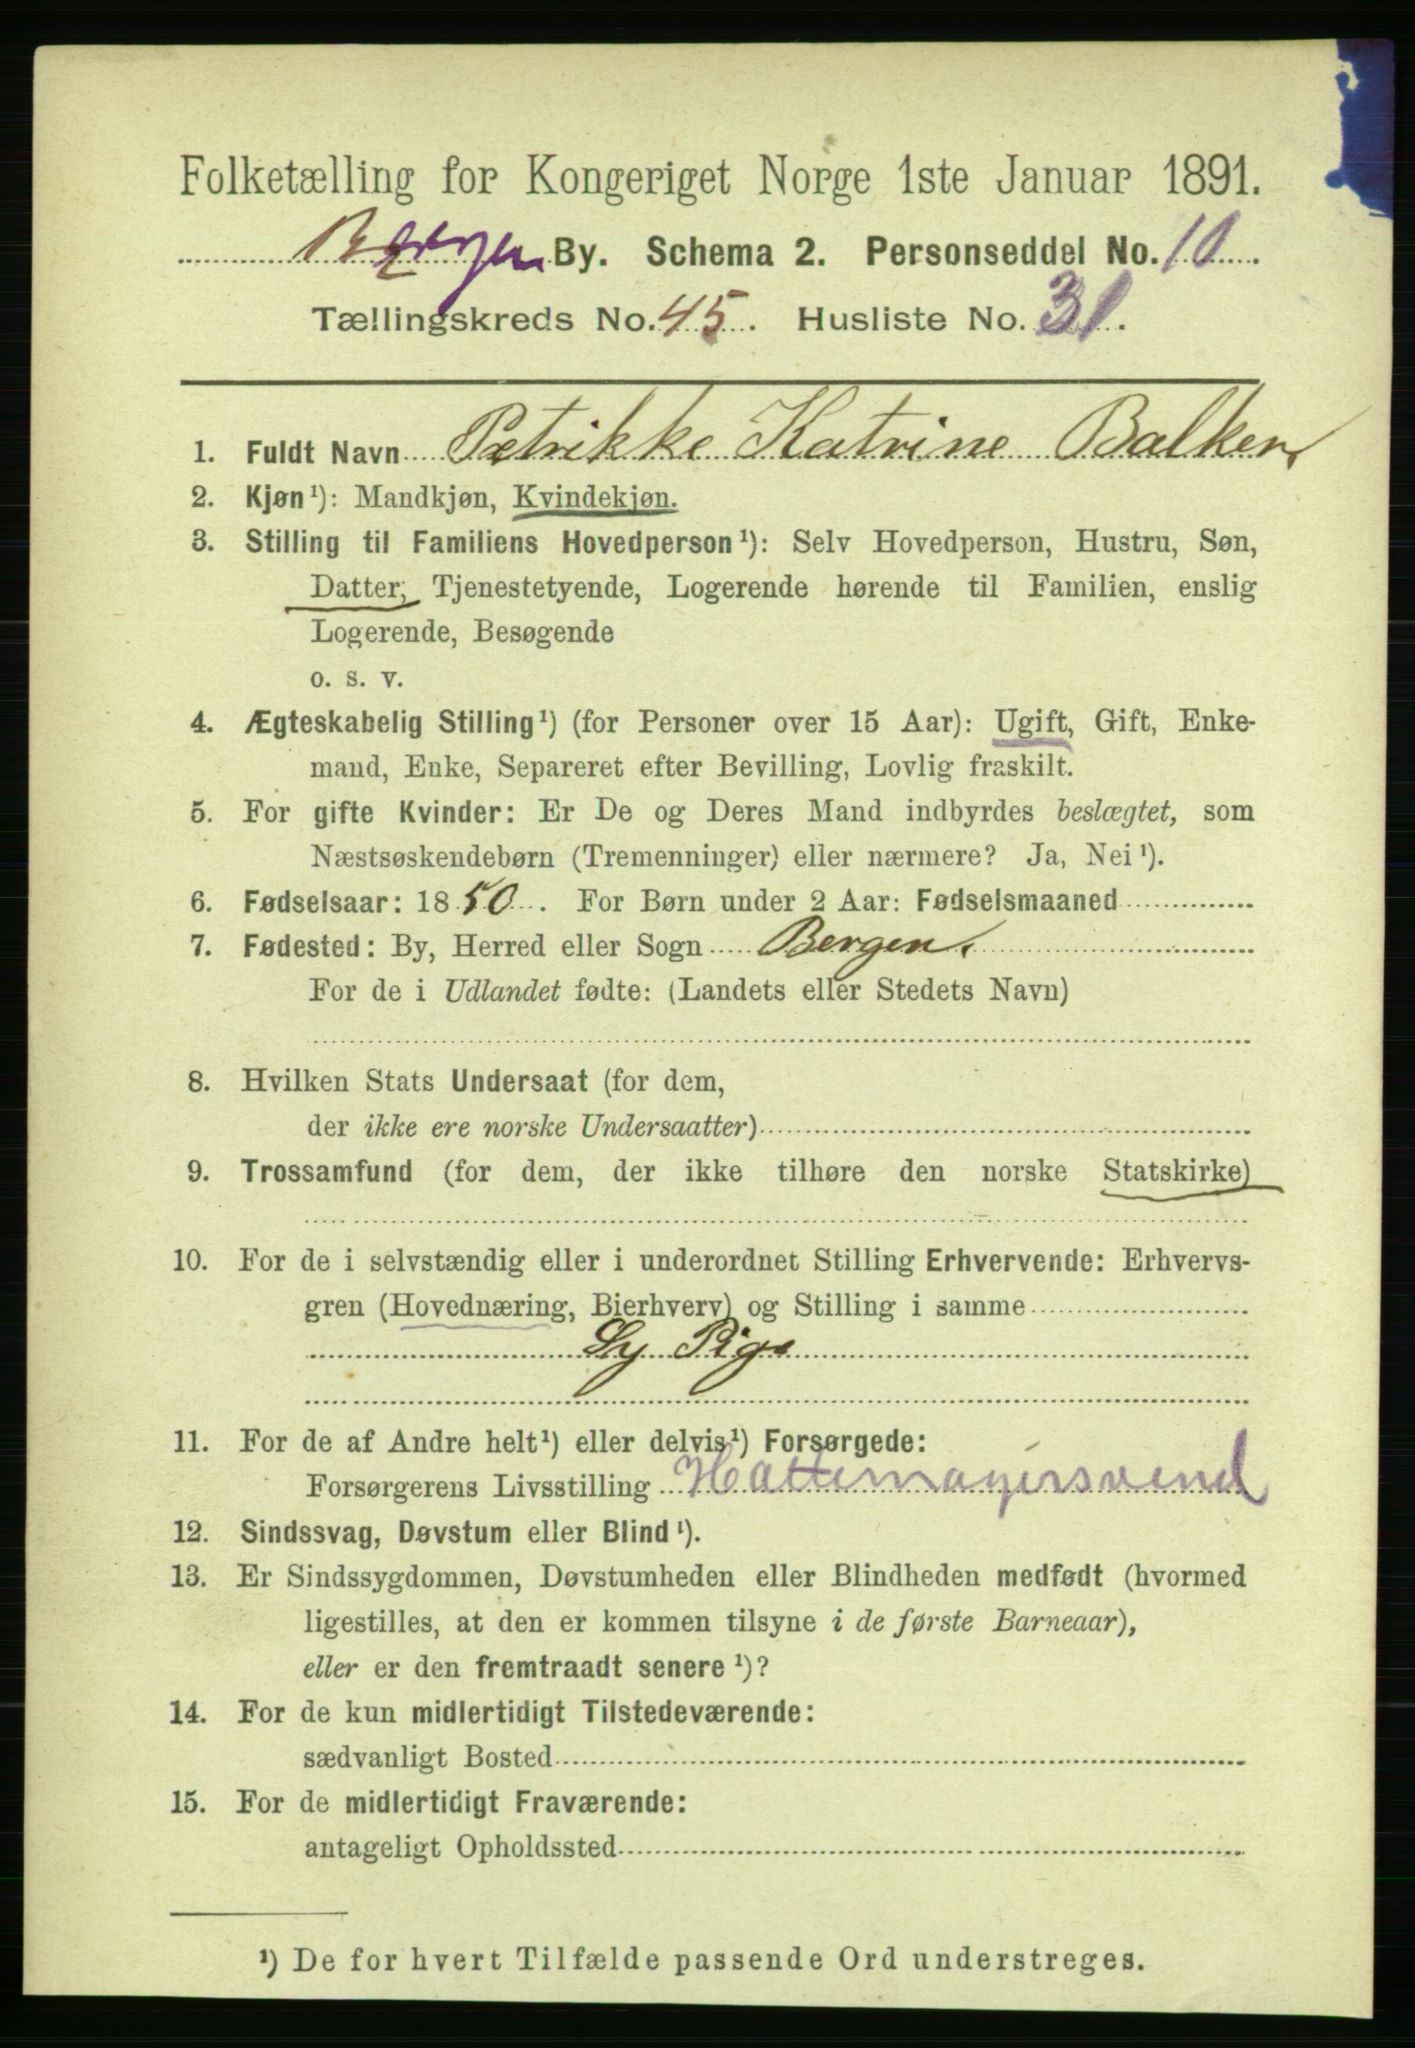 Folketælling for Kongeriget Norge 1ste Januar 1891.
Bergen By. Schema 2. Personseddel No. 10.
Tællingskreds No. 45. Husliste No. 31.
1. Fuldt Navn Petrikke Katrine Balken,
2. Kjøn¹): Mandkjøn, Kvindekjøn.
3. Stilling til Familiens Hovedperson¹): Selv Hovedperson, Hustru, Søn,
Datter, Tjenestetyende, Logerende hørende til Familien, enslig
Logerende, Besøgende
o. s. v.
4. Ægteskabelig Stilling¹) (for Personer over 15 Aar): Ugift, Gift, Enke-
mand, Enke, Separeret efter Bevilling, Lovlig fraskilt.
5. For gifte Kvinder: Er De og Deres Mand indbyrdes beslægtet, som
Næstsøskendebørn (Tremenninger) eller nærmere? Ja, Nei¹).
6. Fødselsaar: 1850. For Børn under 2 Aar: Fødselsmaaned
7. Fødested: By, Herred eller Sogn Bergen.
For de i Udlandet fødte: (Landets eller Stedets Navn)
8. Hvilken Stats Undersaat (for dem,
der ikke ere norske Undersaatter)
9. Trossamfund (for dem, der ikke tilhøre den norske Statskirke)
10. For de i selvstændig eller i underordnet Stilling Erhvervende: Erhvervs-
gren (Hovednæring, Bierhverv) og Stilling i samme
Sy Pige
11. For de af Andre helt¹) eller delvis¹) Forsørgede:
Forsørgerens Livsstilling Hattemagersvend
12. Sindssvag, Døvstum eller Blind¹).
13. Er Sindssygdommen, Døvstumheden eller Blindheden medfødt (hvormed
ligestilles, at den er kommen tilsyne i de første Barneaar),
eller er den fremtraadt senere¹)?
14. For de kun midlertidigt Tilstedeværende:
sædvanligt Bosted
15. For de midlertidigt Fraværende:
antageligt Opholdssted
¹) De for hvert Tilfælde passende Ord understreges.